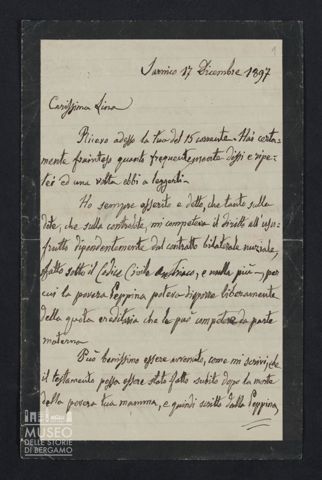 1
Sarnico 17 Dicembre 1897
Carissima Lina
Ricevo adesso la tua del 15 corrente. Hai certa-
mente frainteso quanto frequentemente dissi e ripe-
tei ed una volta ebbi a leggerti.
Ho sempre asserito e detto, che tanto sulla
dote, che sulla controdote, mi competeva il diritto all'usu-
frutto dipendentemente dal contratto bilaterale nuziale,
fatto sotto il Codice Civile Austriaco, e nulla più, per
cui la povera Peppina poteva disporre liberamente
della quota ereditaria che le può competere da parte
materna.
Può benissimo essere avvenuto, come mi scrivi, che
il testamento possa essere stato fatto subito dopo la morte
della povera tua mamma, e quindi scritto dalla Peppina,
MUSEO
DELLE STORIE
DI BERGAMO